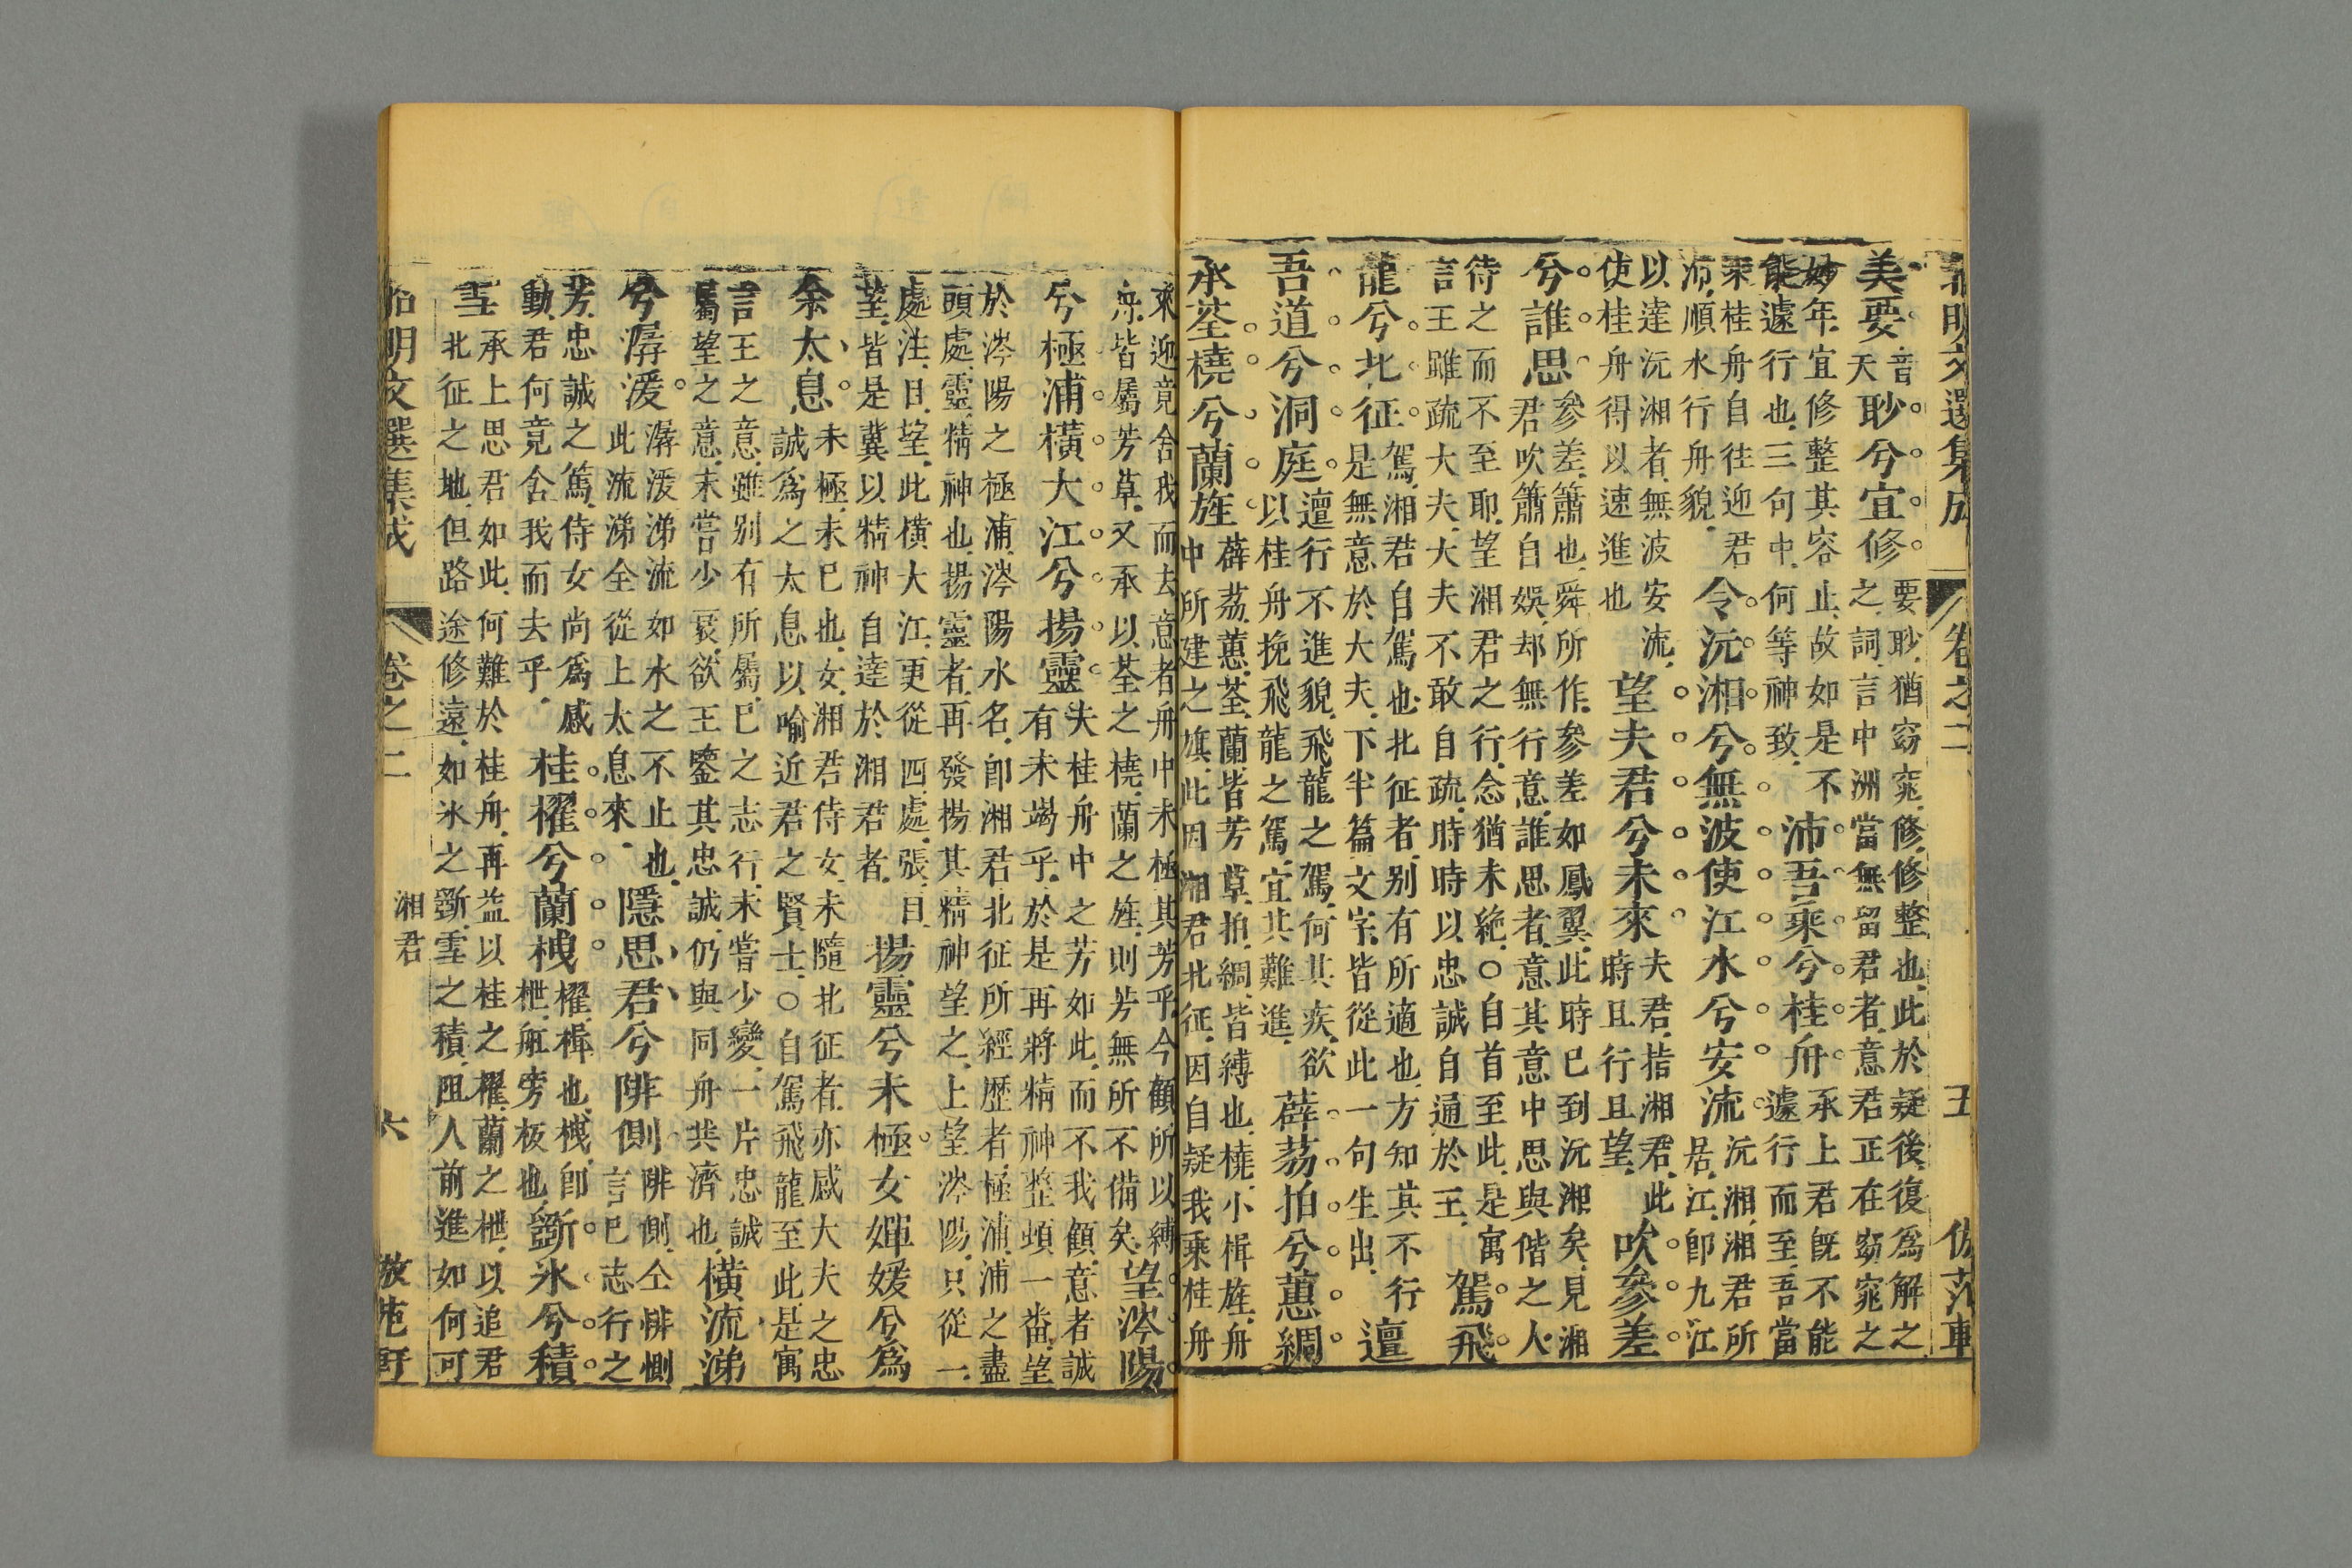 昭明文選集成 卷之二 五 仿范軒
美要音天眇兮宜修要眇猶窈窕修修整也此於疑後復爲解之之詞言中洲當無留君者意君正在窈窕之
妙年宜修整其容止故如是不能遽行也三句中何等神致沛吾乘兮桂舟承上君旣不能遽行而至吾當
乘桂舟自往迎君沛順水行舟貌令沅湘兮無波使江水兮安流沅湘湘君所居江卽九江
以達沅湘者無波安流使桂舟得以速進也望夫君兮未來夫君指湘君此時且行且望吹參差
兮誰思參差簫也舜所作參差如鳳翼此時巳到沅湘矣見湘君吹簫自娛却無行意誰思者意其意中思與偕之人
待之而不至耶望湘君之行念猶未絶○自首至此是寓言王雖疏大夫大夫不敢自疏時時以忠誠自通於王駕飛
龍兮北征駕湘君自駕也北征者别有所適也方知其不行是無意於大夫下半篇文字皆從此一句生出邅
吾道兮洞庭邅行不進貌飛龍之駕何其疾欲以桂舟挽飛龍之駕宜其難進薜荔拍兮蕙綢
承荃橈兮蘭旌薜荔蕙荃蘭皆芳草拍綢皆縛也橈小楫旌舟中所建之旗此因湘君北征因自疑我乘桂舟
來迎竟舍我而去意者舟中未極其芳乎今顧所以縛舟皆屬芳草又承以荃之橈蘭之旌則芳無所不備矣望涔陽
兮極浦橫大江兮揚靈夫桂舟中之芳如此而不我顧意者誠有未竭乎於是再將精神整頓一畨望
於涔陽之極浦涔陽水名卽湘君北征所經歷者極浦浦之盡頭處靈精神也揚靈者再發揚其精神望之上望涔陽只從一
處注目望此橫大江更從四處張目望皆是冀以精神自達於湘君者揚靈兮未極女嬋媛兮爲
余太息未極未巳也女湘君侍女未隨北征者亦感大夫之忠誠爲之太息以喻近君之賢士○自駕飛龍至此是寓
言王之意雖别有所屬巳之志行未嘗少變一片忠誠屬望之意未嘗少衰欲王鑒其忠誠仍與同舟共濟也橫流涕
兮潺湲潺湲涕流如水之不止也此流涕全從上太息來隱思君兮陫側陫側仝悱惻言巳志行之
芳忠誠之篤侍女尚爲感動君何竟舍我而去乎桂櫂兮蘭枻櫂楫也枻卽枻舡旁板也斵氷兮積
雪承上思君如此何難於桂舟再益以桂之櫂蘭之枻以追君北征之地但路途修遠如氷之斵雪之積阻人前進如何可
昭明文選集成 卷之二 湘君 六 倣范軒